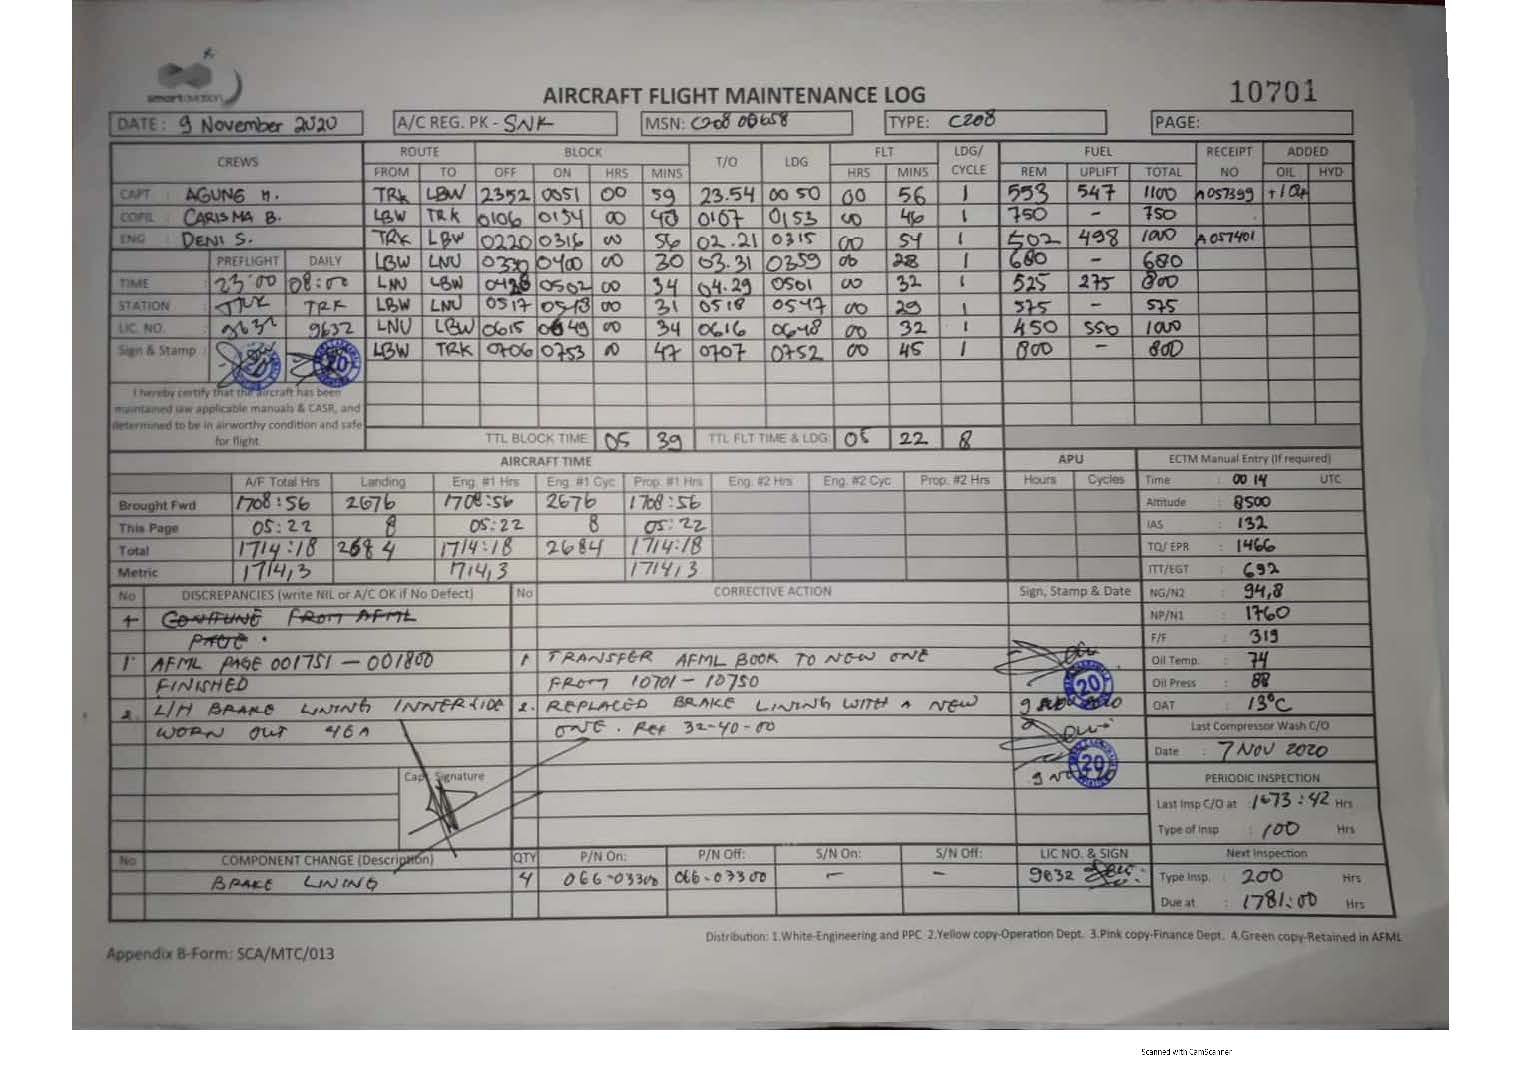 smartaviation
AIRCRAFT FLIGHT MAINTENANCE LOG
10701
DATE: 9 November 2020 A/C REG. PK - SNK MSN: C208 00658 TYPE: C208 PAGE:
CREWS ROUTE BLOCK T/O LDG FLT LDG/ CYCLE FUEL RECEIPT NO ADDED
FROM TO OFF ON HRS MINS HRS MINS REM UPLIFT TOTAL OIL HYD
CAPT : AGUNG H. TRK LBW 2352 0051 00 59 23.54 00 50 00 56 1 553 547 1100 A057399
COPIL : CARISMA B. LBW TRK 0106 0154 00 48 0107 0153 00 46 1 750 - 750
ENG : DENI S. TRK LBW 0220 0316 00 56 02.21 0315 00 54 1 502 498 1000 A057401
PREFLIGHT DAILY LBW LNU 0330 0400 00 30 03.31 0359 00 28 1 680 - 680
TIME : 23:00 08:00 LNU LBW 0428 0502 00 34 04.29 0501 00 32 1 525 275 800
STATION : TRK TRK LBW LNU 0517 0548 00 31 0518 0547 00 29 1 575 - 575
LIC. NO. : 9632 9632 LNU LBW 0615 0649 00 34 0616 0648 00 32 1 450 550 1000
Sign & Stamp : LBW TRK 0706 0753 00 47 0707 0752 00 45 1 800 - 800
I hereby certify that the aircraft has been
maintained iaw applicable manuals & CASR, and
determined to be in airworthy condition and safe
for flight.
TTL BLOCK TIME 05 39 TTL FLT TIME & LDG 05 22 8
AIRCRAFT TIME APU ECTM Manual Entry (If required)
A/F Total Hrs Landing Eng. #1 Hrs Eng. #1 Cyc Prop. #1 Hrs Eng. #2 Hrs Eng. #2 Cyc Prop. #2 Hrs Hours Cycles Time : 00 14 UTC
Brought Fwd 1708:56 2676 1708:56 2676 1708:56 Altitude : 8500
This Page 05:22 8 05:22 8 05:22 IAS : 132
Total 1714:18 2684 1714:18 2684 1714:18 TQ/ EPR : 1466
Metric 1714,3 1714,3 1714,3 ITT/EGT : 692
No DISCREPANCIES (write NIL or A/C OK if No Defect) No CORRECTIVE ACTION Sign, Stamp & Date NG/N2 : 94,8
NP/N1 : 1760
FROM AFML
PAGE .
F/F : 319
1 AFML PAGE 001751 - 001800 1 TRANSFER AFML BOOK TO NEW ONE Oil Temp. : 74
FINISHED FROM 10701 - 10750 20 Oil Press : 88
2. L/H BRAKE LINING INNERSIDE 2. REPLACED BRAKE LINING WITH A NEW OAT : 13°C
WORN OUT ONE. REF 32-40-00 Last Compressor Wash C/O
20 Date : 7 NOV 2020
Capt. Signature PERIODIC INSPECTION
Last Insp C/O at : 1673:42 Hrs
Type of Insp : 100 Hrs
No COMPONENT CHANGE (Description) QTY P/N On: P/N Off: S/N On: S/N Off: LIC NO. & SIGN Next Inspection
BRAKE LINING 4 066-03300 066-03300 - - 9632 Type Insp. : 200 Hrs
Due at : 1781:00 Hrs
Distribution: 1.White-Engineering and PPC 2.Yellow copy-Operation Dept. 3.Pink copy-Finance Dept. 4.Green copy-Retained in AFML
Appendix B-Form: SCA/MTC/013
Scanned with CamScanner